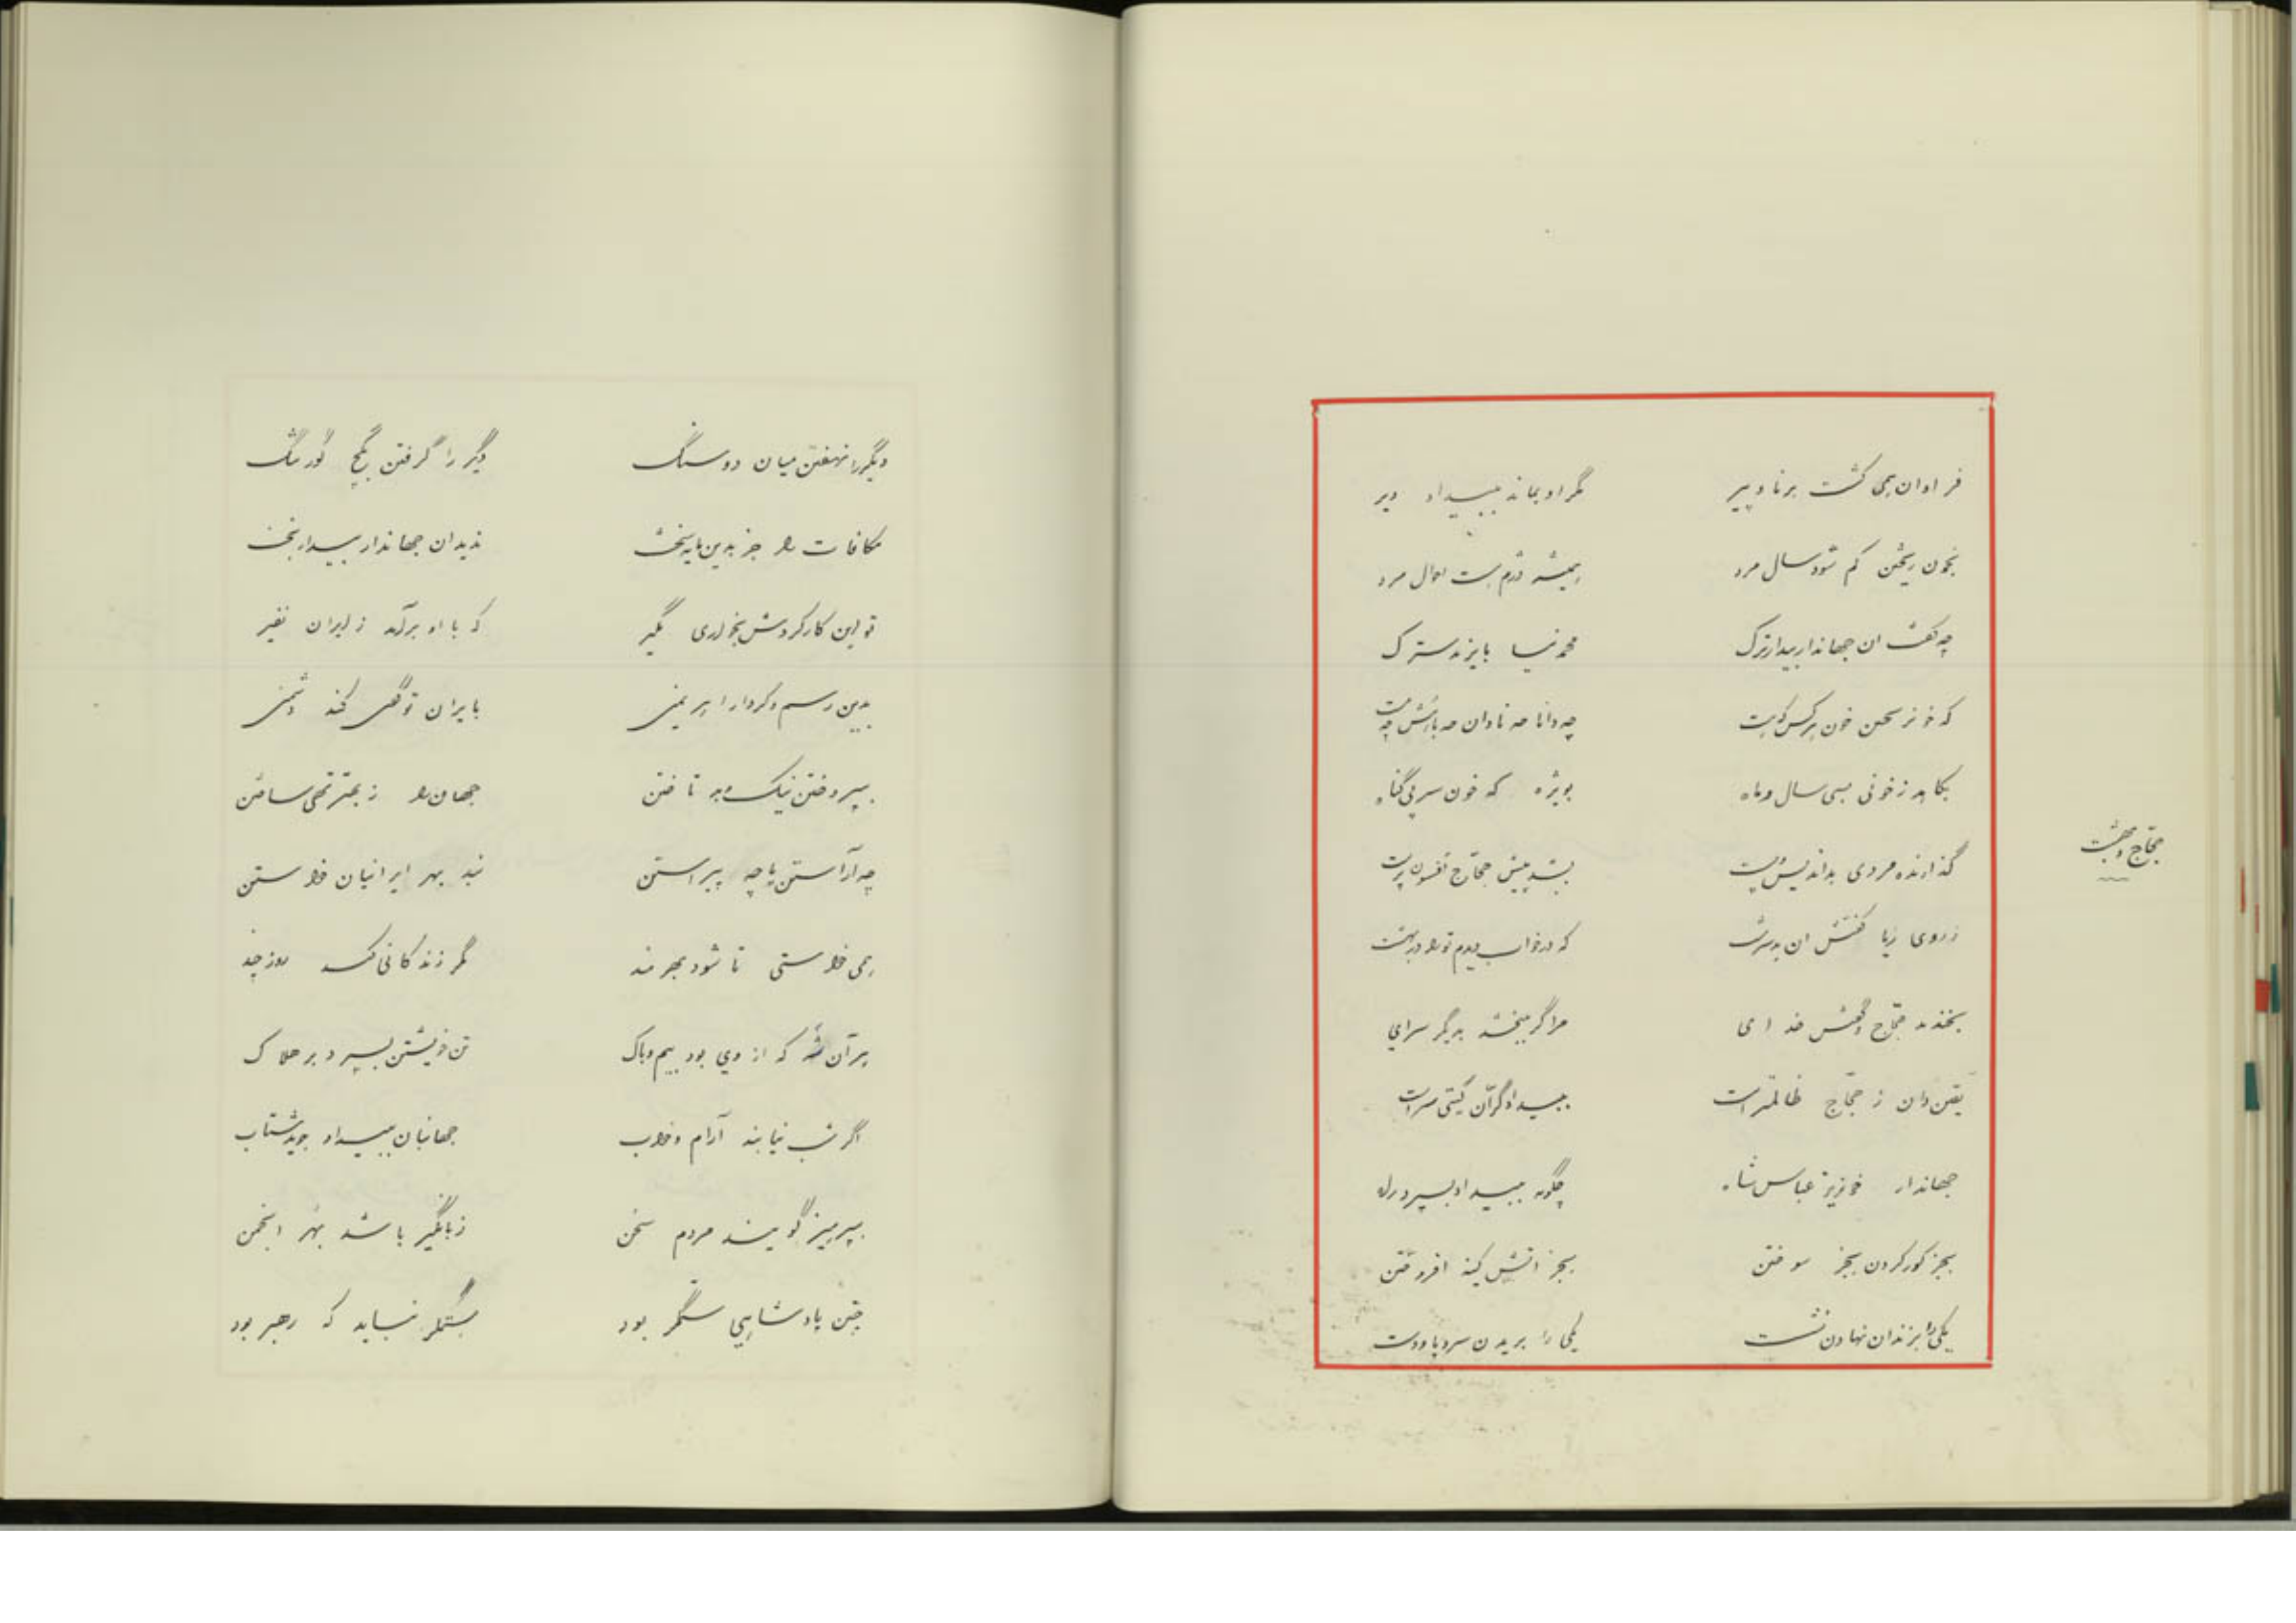 فراوان همی کشت برنا و پیر مگر او بماند ببیداد دیر
بخون ریختن کم شود سال مرد همیشه دژم است احوال مرد
چه گفت ان جهاندار بیدار ترک محمد نسیا بایزد سترک
که خون هر کس چه دانا چه نادان چه
بکاهد ز خونی بسی سال و ماه بویژه که خون سر بی گناه
گذارنده مردی بداندیش پست بشد پیش حجّاج افسون پرست
ز روی ریا گفتش ان بدسرشت که در خواب دیدم تو را در بهشت
بخندید حجّاج و گفتش خدای مرا گر ببخشد بدیگر سرای
حجّاج و بهشت
یقین دان ز حجّاج ظالمتر است ببیدادگر آن گیتی سر است
جهاندار خونریز عباس شاه چگونه ببیداد بسپرد راه
بجز کور کردن بجز سوختن بجز اتش کینه افروختن
یکی را بزندان نهادن نشست یکی را بریدن سر و پا و دست
دیگر را نهفتن میان دو سنگ دگر را گرفتن بگچ گور تنگ
مکافات را جز بدین پایه سخت ندید ان جهاندار بیدار بخت
تو این کار کردش بخواری مگیر که با او برآمد ز ایران نفیر
بدین رسم و کردار اهریمنی بایران تو گفتی کند دشمنی
بپردختن نیک و بد تافتن جهان را ز بهتر تهی ساختن
چه آراستن یا چه پیراستن نبد بهر ایرانیان خواستن
همی خواستی تا شود بهرمند مگر زندگانی کند روز چند
هر آن شه که از وی بود بیم و باک تن خویشتن بسپرد بر هلاک
اگر شب نیابند آرام و خواب جهانبان ببیداد جوید شتاب
بپرهیز گویند مردم سخن زبانگیر باشد بهر انجمن
چنن پادشاهی ستمگر بود ستمگر نباید که رهبر بود